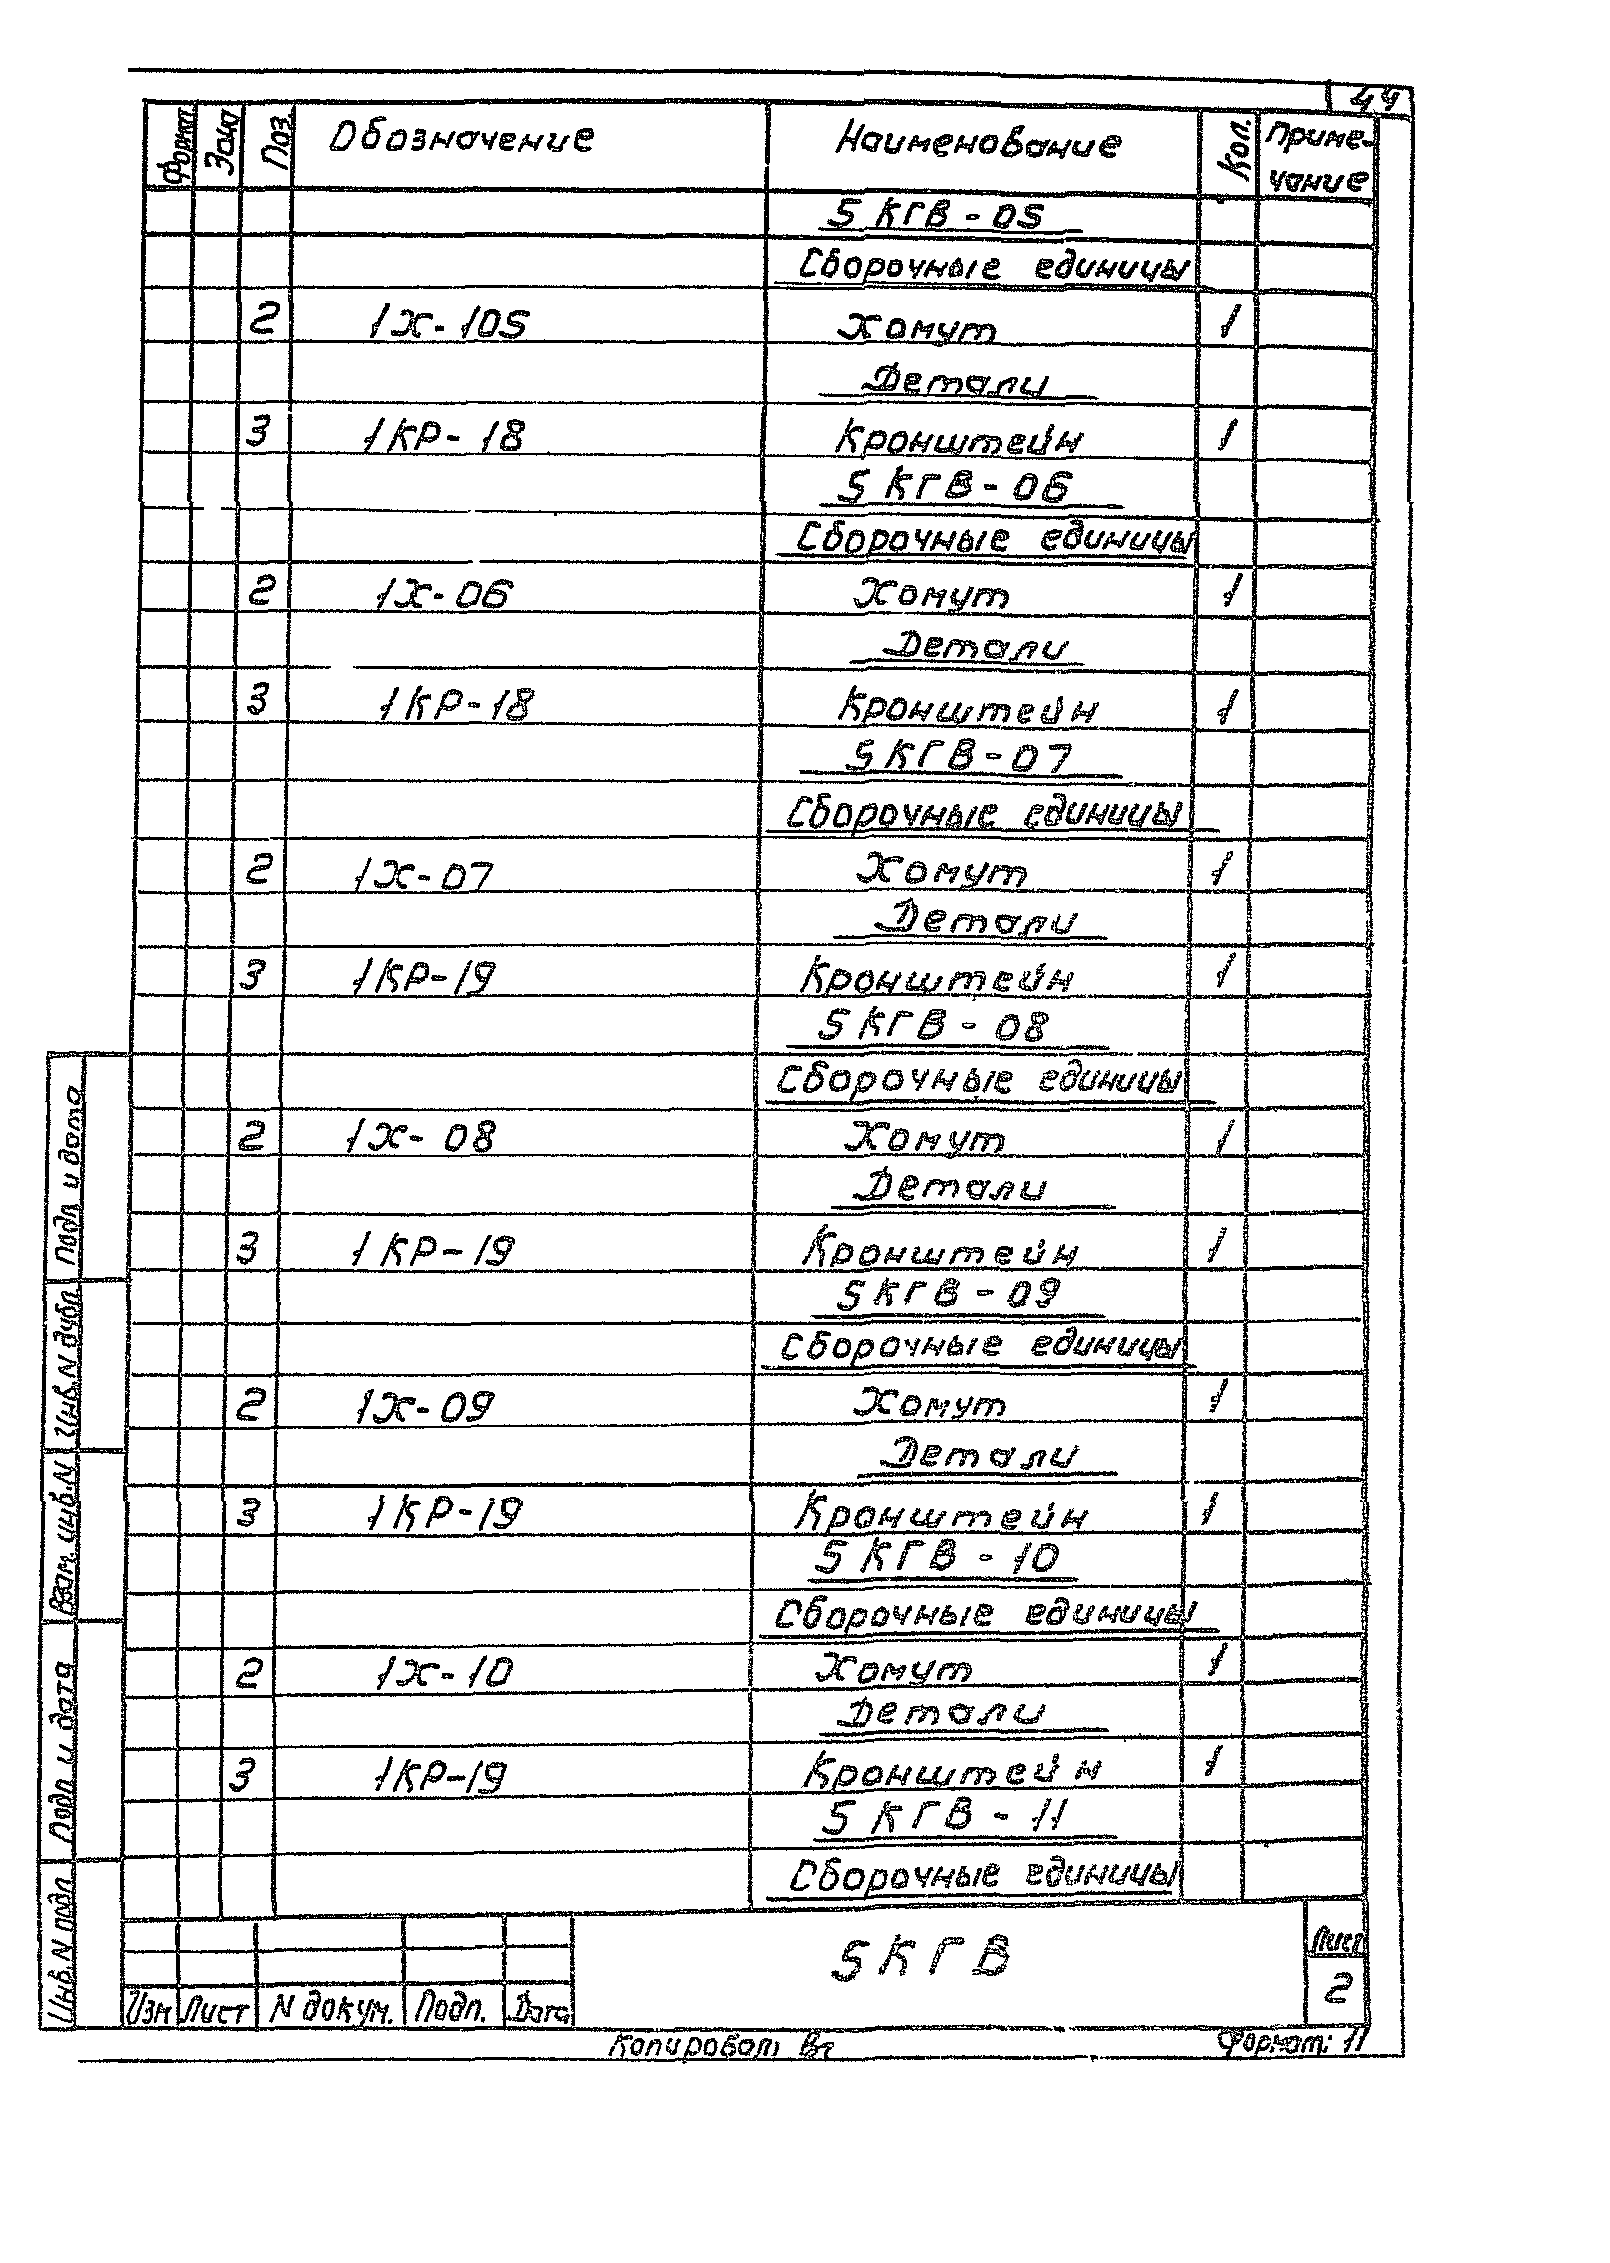 44
Формат Зона Поз. Обозначение Наименование Кол. Приме-
чание
5КГВ-05
Сборочные единицы
2 1Х-105 Хомут 1
Детали
3 1КР-18 Кронштейн 1
5КГВ-06
Сборочные единицы
2 1Х-06 Хомут 1
Детали
3 1КР-18 Кронштейн 1
5КГВ-07
Сборочные единицы
2 1Х-07 Хомут 1
Детали
3 1КР-19 Кронштейн 1
5КГВ-08
Сборочные единицы
2 1Х-08 Хомут 1
Детали
3 1КР-19 Кронштейн 1
5КГВ-09
Сборочные единицы
2 1Х-09 Хомут 1
Детали
3 1КР-19 Кронштейн 1
5КГВ-10
Сборочные единицы
2 1Х-10 Хомут 1
Детали
3 1КР-19 Кронштейн 1
5КГВ-11
Сборочные единицы
Подп и дата
Инв.N дубл
Взам. инв.N
Подп и дата
Инв.N подл
5КГВ
Лист
2
Изм Лист N докум. Подп. Дата
Копировал Формат: 11